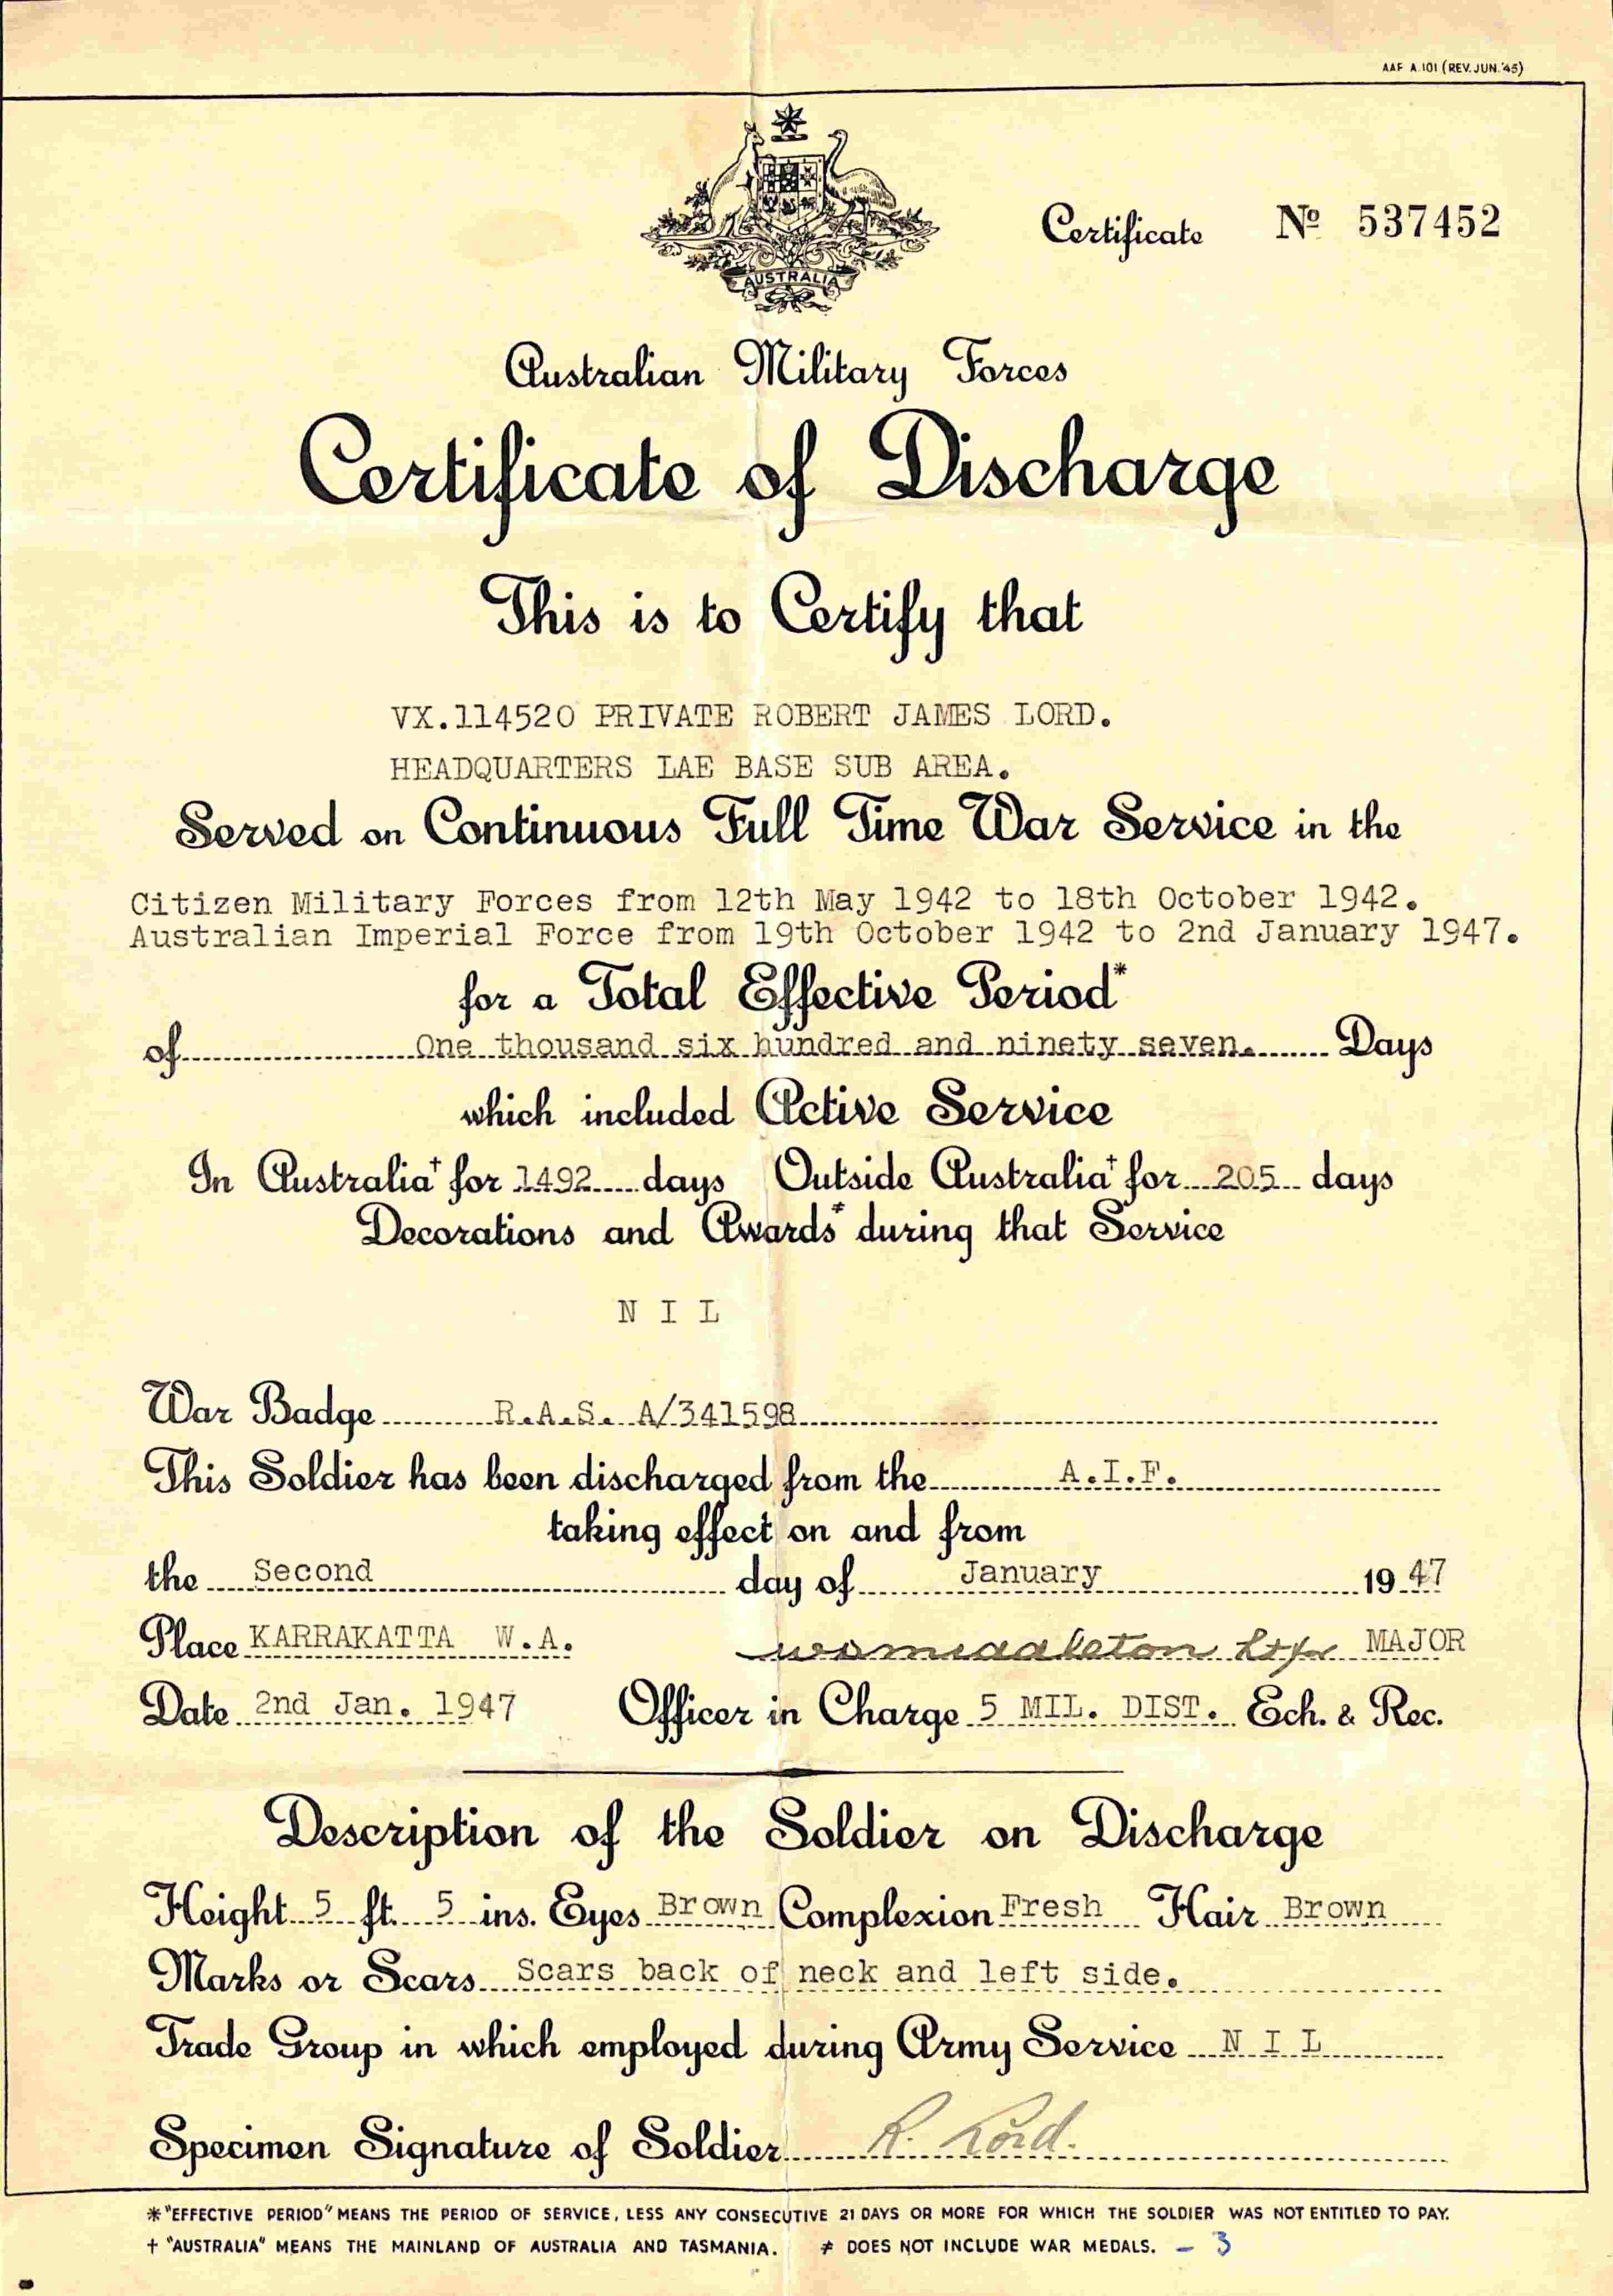 AAF A.101 (REV. JUN. '45)
AUSTRALIA
Certificate Nº 537452
Australian Military Forces
Certificate of Discharge
This is to Certify that
VX.114520 PRIVATE ROBERT JAMES LORD.
HEADQUARTERS LAE BASE SUB AREA.
Served on Continuous Full Time War Service in the
Citizen Military Forces from 12th May 1942 to 18th October 1942.
Australian Imperial Force from 19th October 1942 to 2nd January 1947.
for a Total Effective Period*
of One thousand six hundred and ninety seven. Days
which included Active Service
In Australia† for 1492 days Outside Australia† for 205 days
Decorations and Awards≠ during that Service
N I L
War Badge R.A.S. A/341598
This Soldier has been discharged from the A.I.F.
taking effect on and from
the Second day of January 1947
Place KARRAKATTA W.A. MAJOR
Date 2nd Jan. 1947 Officer in Charge 5 MIL. DIST. Ech. & Rec.
Description of the Soldier on Discharge
Height 5 ft. 5 ins. Eyes Brown Complexion Fresh Hair Brown
Marks or Scars Scars back of neck and left side.
Trade Group in which employed during Army Service N I L
Specimen Signature of Soldier R. Lord.
* "EFFECTIVE PERIOD" MEANS THE PERIOD OF SERVICE, LESS ANY CONSECUTIVE 21 DAYS OR MORE FOR WHICH THE SOLDIER WAS NOT ENTITLED TO PAY.
† "AUSTRALIA" MEANS THE MAINLAND OF AUSTRALIA AND TASMANIA. ≠ DOES NOT INCLUDE WAR MEDALS. — 3